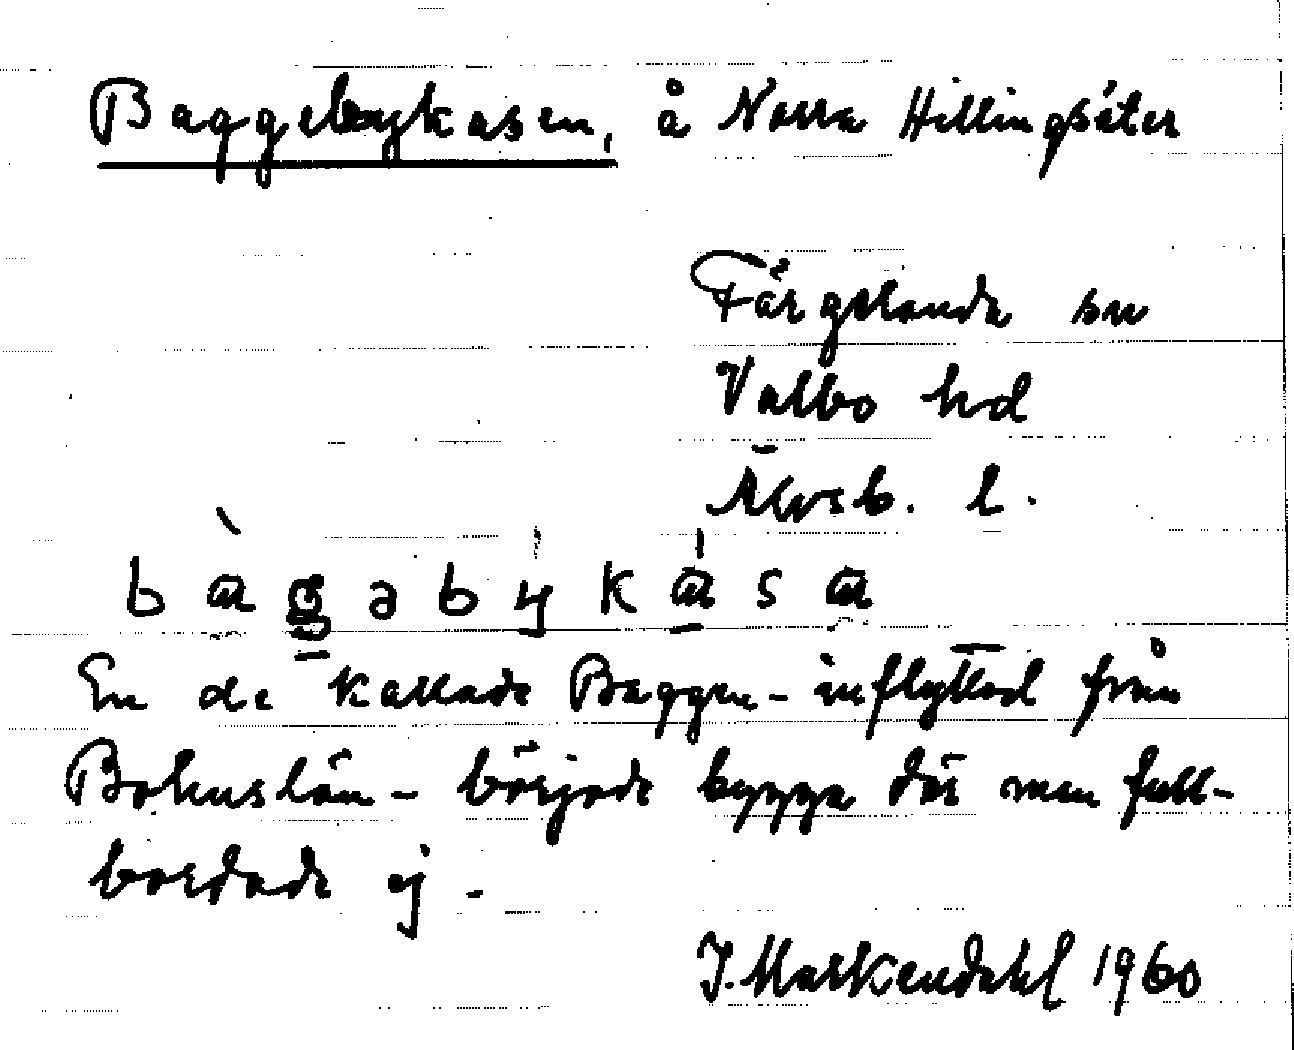 Baggebykasen, å Norra Hillingsäter
Färgelanda sn
Valbo hd
Älvsb. l.
bàgəbýkása
En de kallade Baggen - inflyttad från
Bohuslän - började bygga där men full-
bordade ej -
J. Markendahl 1960